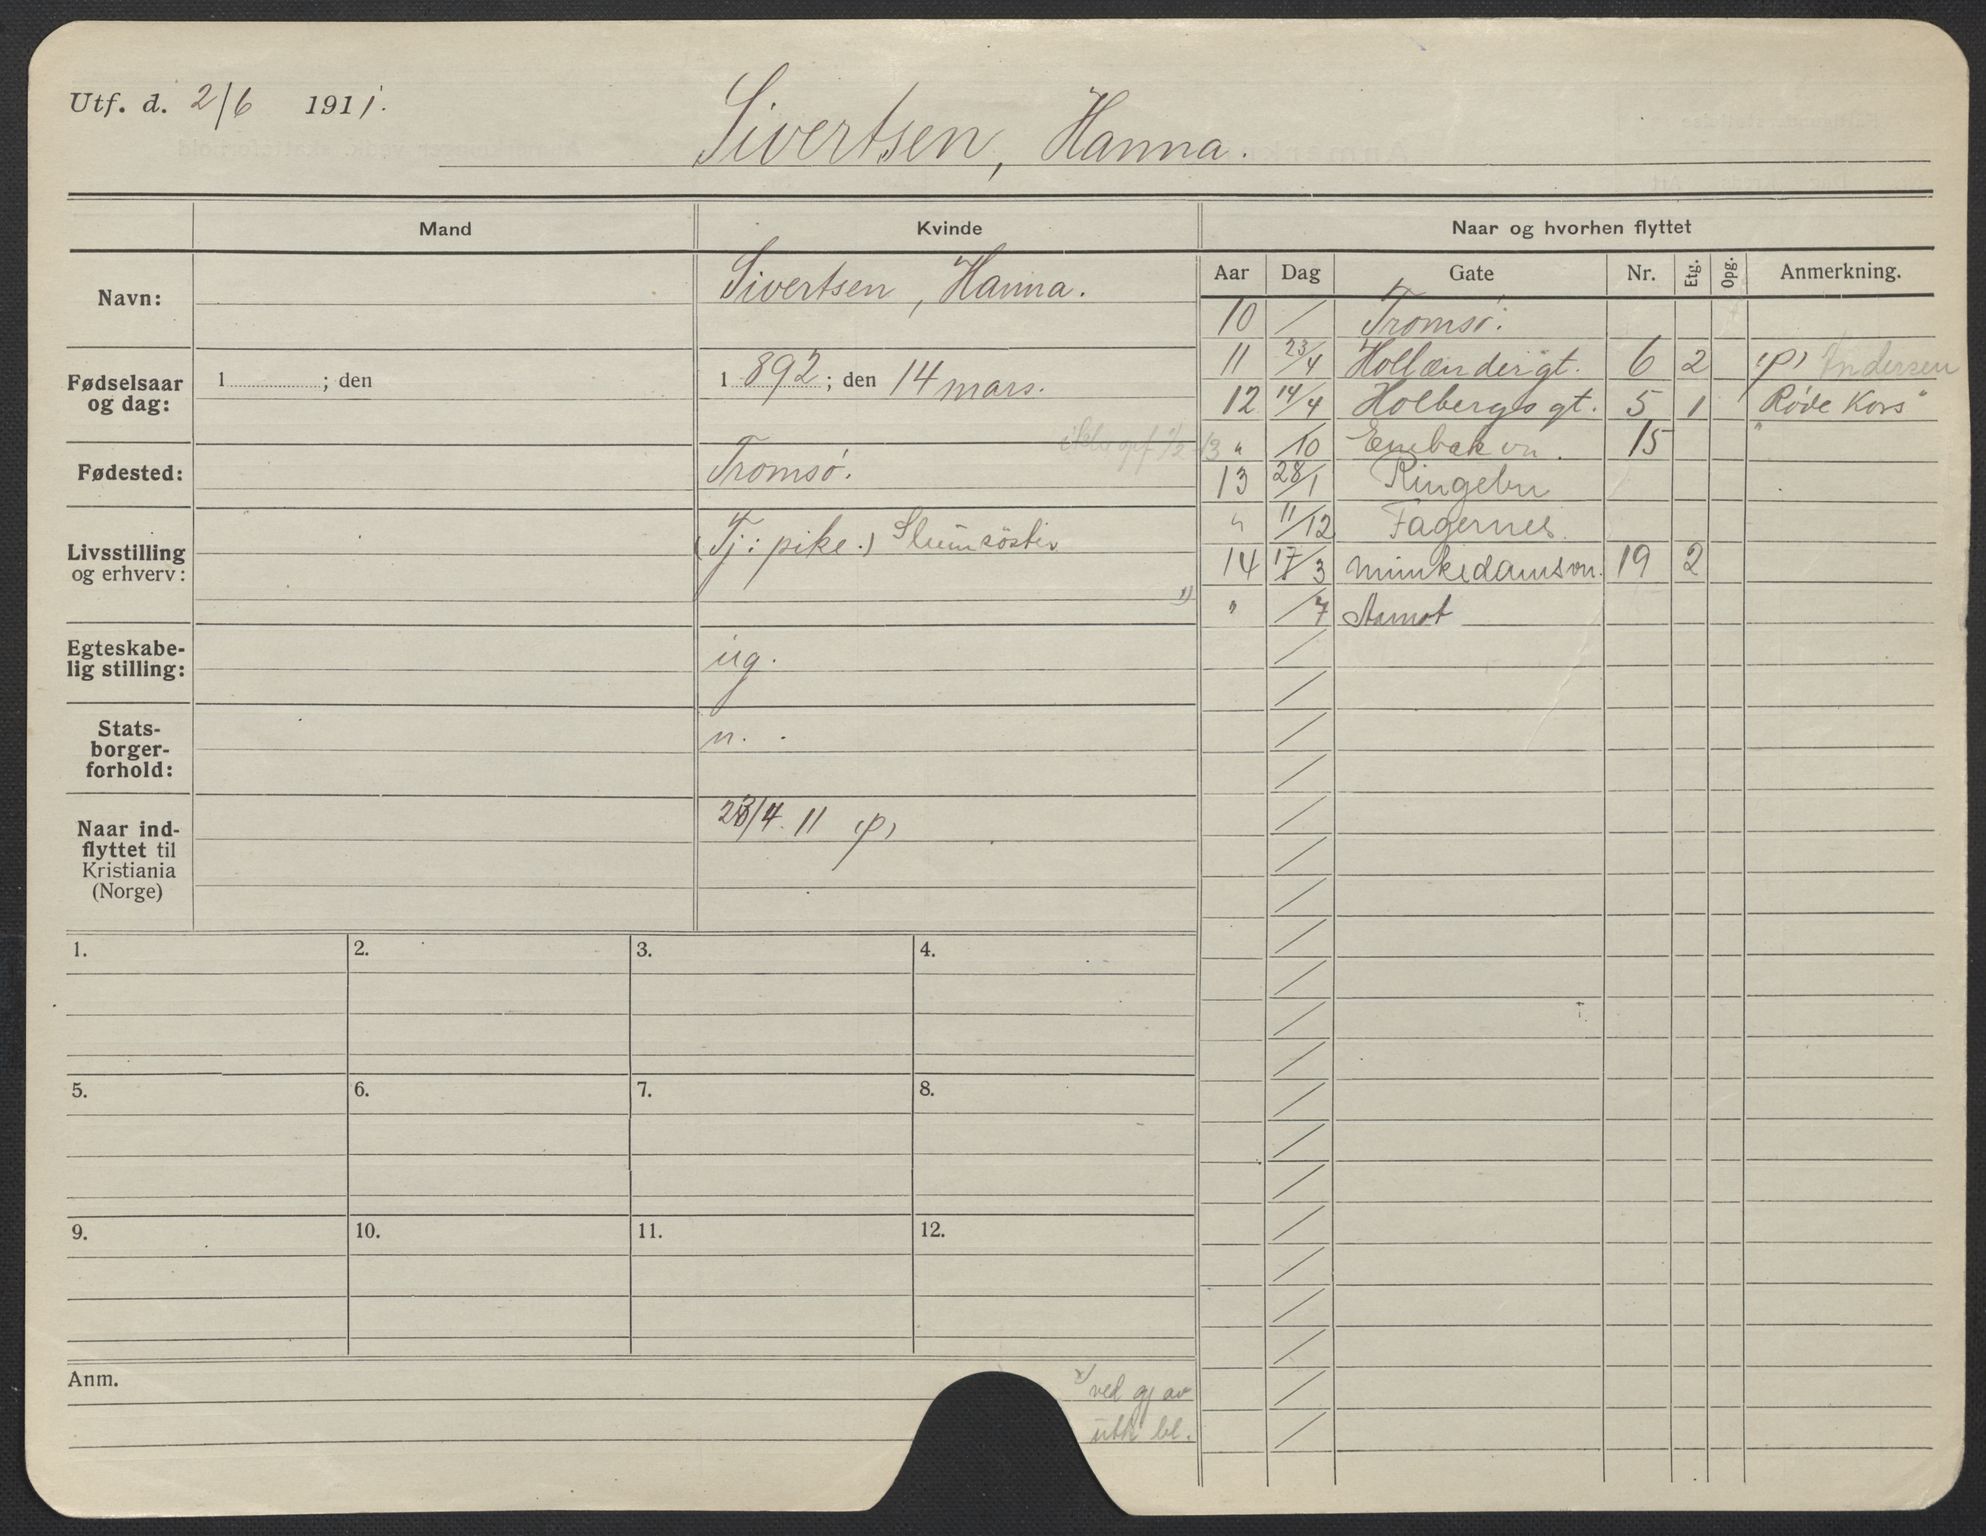 Utf. d. 2/6 1911.
Sivertsen, Hanna.
Mand
Kvinde
Naar og hvorhen flyttet
Aar Dag Gate Nr. Etg. Opg. Anmerkning.
Navn:
Sivertsen, Hanna.
Fødselsaar og dag:
1 ; den
1892; den 14 mars.
Fødested:
Tromsø.
Livsstilling og erhverv:
(Tj: pike.) Slumsöster
1)
Egteskabe-
lig stilling:
ug.
Stats-
borger-
forhold:
n.
Naar ind-
flyttet til
Kristiania
(Norge)
23/4. 11 (p)
10 / Tromsø.
11 23/4 Hollændergt. 6 2 (p) Andersen
12 14/4 Holbergs gt. 5 1 "Røde Kors"
" /10 Enebakvn. 15 "
13 28/1 Ringebu
" 11/12 Fagernes
14 17/3 Munkedamsvn. 19 2
" /7 Aamot
1. 2. 3. 4.
5. 6. 7. 8.
9. 10. 11. 12.
Anm.
x) ved gj av
utk bl.